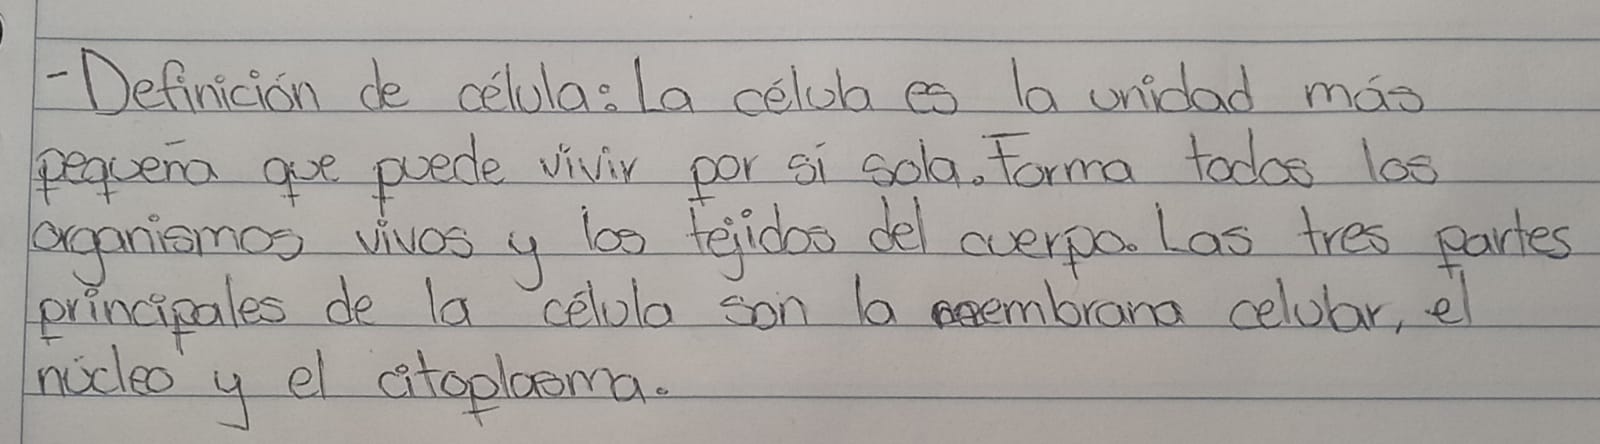 - Definición de célula: La célula es la unidad más
pequeña que puede vivir por sí sola. Forma todos los
organismos vivos y los tejidos del cuerpo. Las tres partes
principales de la célula son la membrana celular, el
núcleo y el citoplasma.